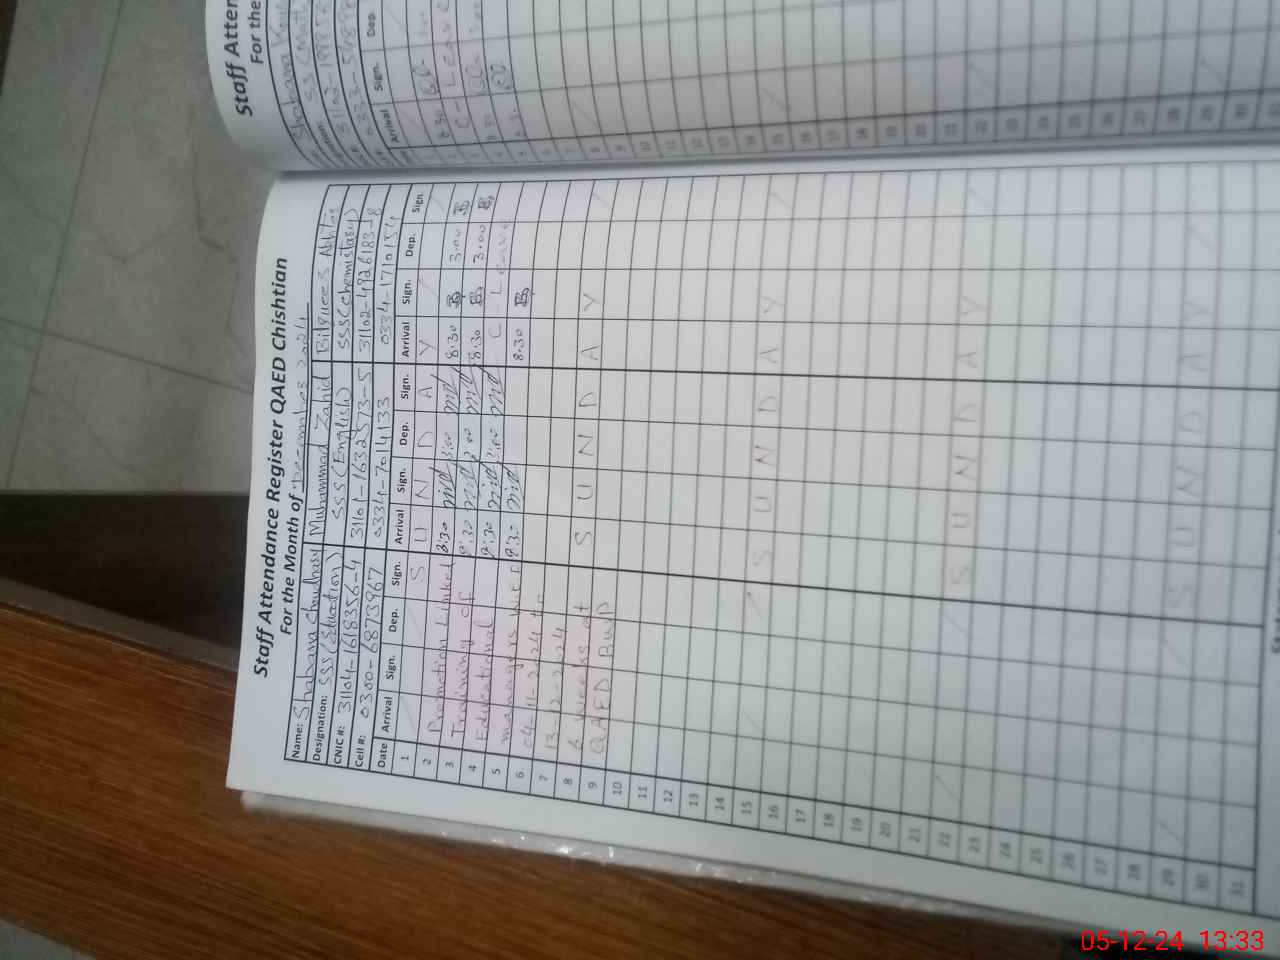 Staff Attendance Register QAED Chishtian
For the Month of December 2024
Name: Shabana Chudhary Muhammad Zahid Bilquees Akhtar
Designation: SSS (Education) SSS (English) SSS (Chemistry)
CNIC #: 31104-1618356-4 31101-1632573-5 31102-4926183-8
Cell #: 0300-6873967 0334-7014133 0334-1710154
Date Arrival Sign. Dep. Sign. Arrival Sign. Dep. Sign. Arrival Sign. Dep. Sign.
1 S U N D A Y
2 Promotion Linked 8:30 3:00 8:30 3:00
3 Training of 8:30 3:00 8:30 3:00
4 Educational 8:30 3:00 C - Leave
5 managers W.E.F 8:30 8:30
6 04-11-2024 to
7 13-12-2024
8 6 weeks at S U N D A Y
9 QAED BWP
10
11
12
13
14
15 S U N D A Y
16
17
18
19
20
21
22 S U N D A Y
23
24
25
26
27
28
29 S U N D A Y
30
31
Staff Atten
For the
Shabana
SSS (Math
31102-
0333-
Arrival Sign. Dep.
C - Leave
1
2
3
4
5
6
7
8
9
10
11
12
13
14
15
16
17
18
19
20
21
22
23
24
25
26
27
28
29
30
05-12-24 13:33